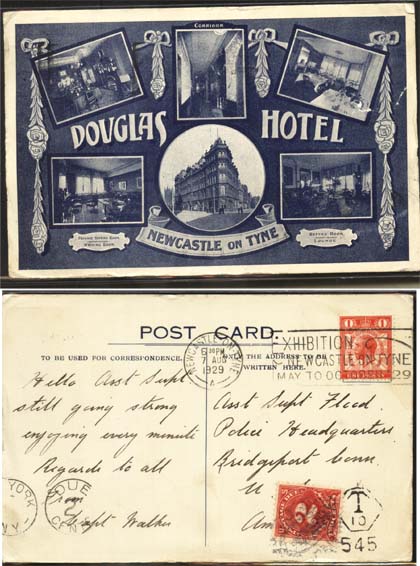 CORRIDOR
DOUGLAS HOTEL
NEWCASTLE ON TYNE
COFFEE ROOM
LOUNGE
POST CARD.
TO BE USED FOR CORRESPONDENCE.
ONLY THE ADDRESS TO BE
WRITTEN HERE.
NEWCASTLE-ON-TYNE
6 PM
7 AUG
1929
A
EXHIBITION
NEWCASTLE ON TYNE
MAY TO OCTOBER 1929
1 1
Hello Asst Supt
still going strong
enjoying every minute
Regards to all
from
Capt Walker
Asst Supt Flood.
Police Headquarters
Bridgeport Conn
U
Am
YORK
N.Y.
DUE
2
CENTS
2
T
10
545